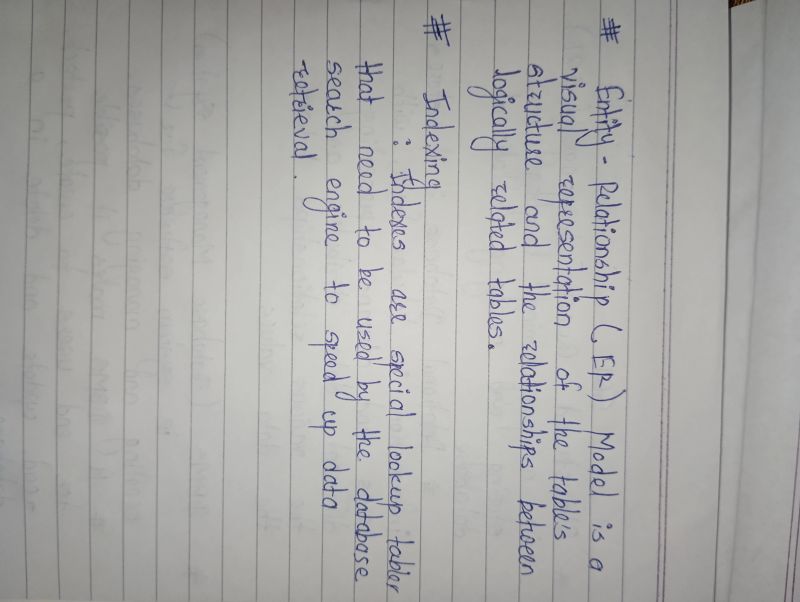 # Entity - Relationship (ER) Model is a
visual representation of the table's
structure and the relationships between
logically related tables.
# Indexing
: Indexes are special lookup tables
that need to be used by the database
search engine to speed up data
retrieval.